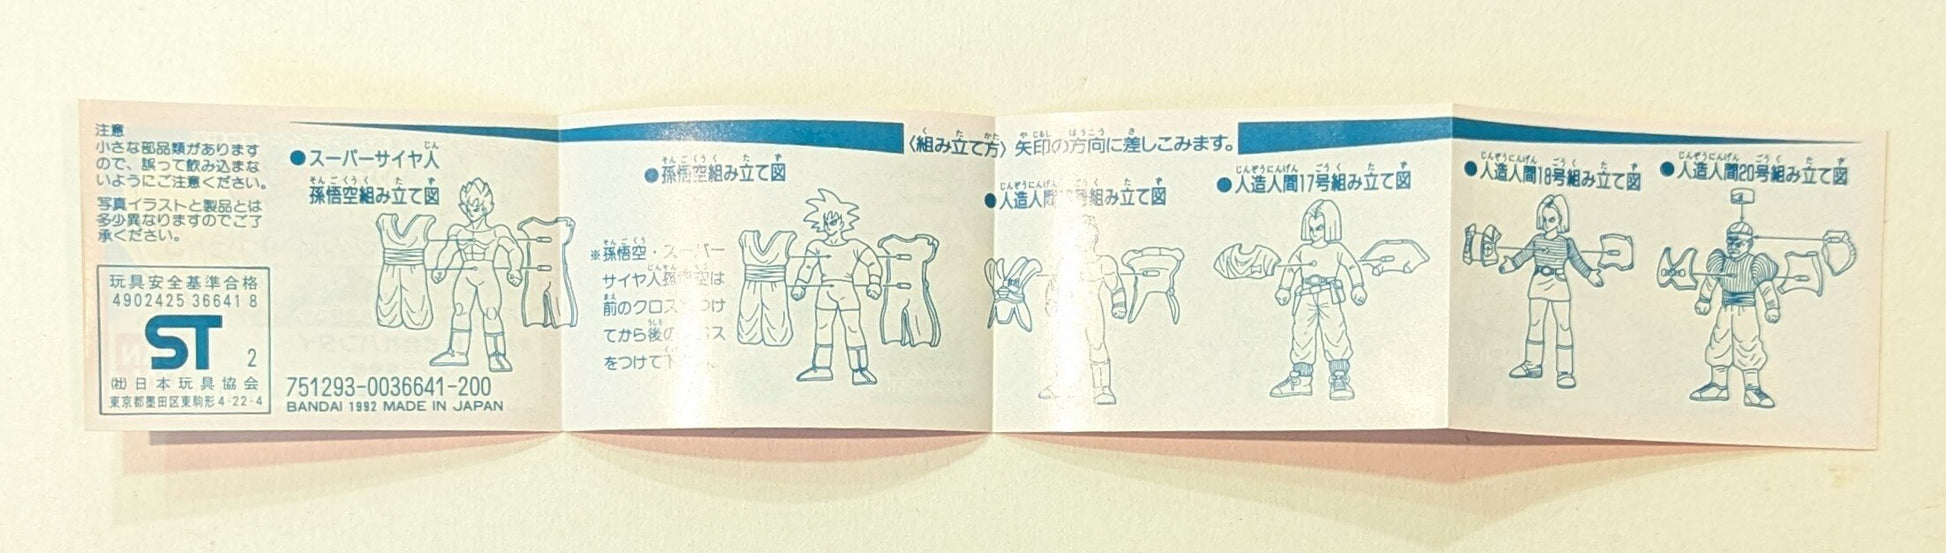 注意
小さな部品類があります
ので、誤って飲み込まな
いようにご注意ください。
写真イラストと製品とは
多少異なりますのでご了
承ください。
玩具安全基準合格
4902425 36641 8
ST 2
(社)日本玩具協会
東京都墨田区東駒形4-22-4
●スーパーサイヤ人
孫悟空組み立て図
751293-0036641-200
BANDAI 1992 MADE IN JAPAN
●孫悟空組み立て図
※孫悟空・スーパー
サイヤ人孫悟空は
前のクロス つけ
てから後の ロス
をつけて下
〈組み立て方〉矢印の方向に差しこみます。
●人造人間 号組み立て図
●人造人間17号組み立て図
●人造人間18号組み立て図
●人造人間20号組み立て図